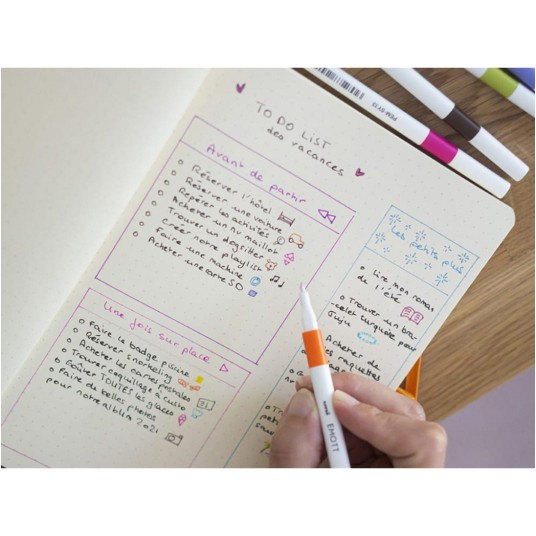 TO DO LIST
des vacances
Avant de partir
Réserver l'hôtel
Réserver une voiture
Repérer les activités
Acheter un nv maillot
Trouver un dogsitter
Créer notre playlist
Faire une machine
Acheter une carte SD
Une fois sur place
Faire le badge piscine
Réserver snorkeling
Acheter les cartes postales
Trouver coquillage à custo
Goûter TOUTES les glaces
Faire de belles photos
pour notre album 2021
Les petits plus
Lire mon roman
de l'été
Trouver un bra-
-celet turquoise pour
Juju
Acheter de
raquettes
Trouver
uni EMOTT